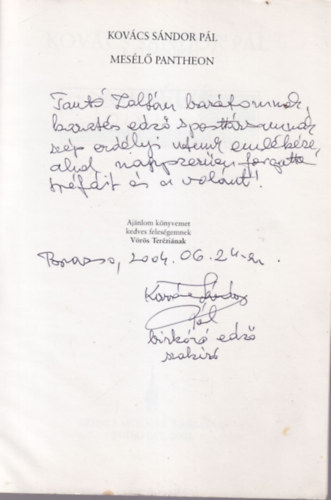 KOVÁCS SÁNDOR PÁL
MESÉLŐ PANTHEON
Tantó Zoltán barátomnak,
edző sporttársamnak
szép erdélyi utunk emlékére,
ahol nagyszerűen forgatta
tréfáit és a volánt!
Ajánlom könyvemet
kedves feleségemnek
Vörös Teréziának
Brassó, 2004. 06. 24-én.
Kovács Sándor
Pál
birkózó edző
szakíró